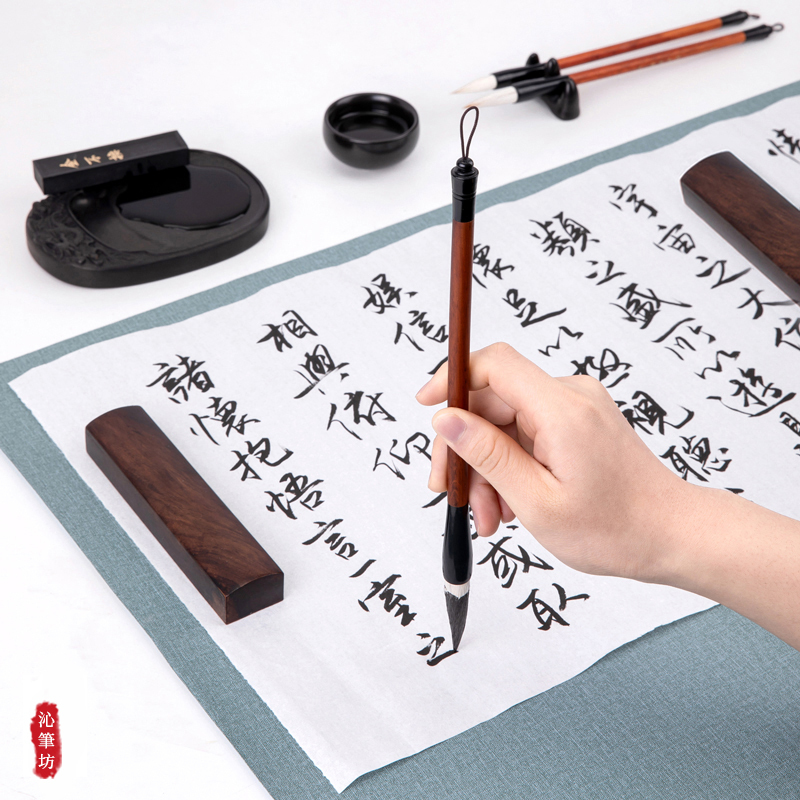 情
宇宙之大
類之盛所以遊
懷足以極視聽
娛信
相與俯仰或取
諸懷抱悟言一室之
沁筆坊